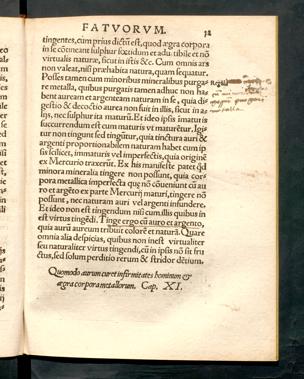 FATVORVM. 32
tingentes, cum prius dictũ est, quod ægra corpora
in se cõtineant sulphur fœtidum et adustibile et nõ
virtualis naturæ, sicut in istis &c. Cum omnis ars
non valeat, nisi præhabita natura, quam sequatur.
Posses tamen cum minoribus mineralibus purga-
re metalla, quibus purgatis tamen adhuc non ha-
bent auream et argenteam naturam in se, quia di-
gestio & decoctio aurea non fuit in illis, sicut in a-
lijs, nec sulphur ita maturũ. Et ideo ipsis imaturis
succurrendum est cum maturis vt maturẽtur. Igi-
tur non tingunt sed tingũtur, quia tinctura auri &
argenti proportionabilem naturam habet cum ip-
sis scilicet, immaturis vel imperfectis, quia originẽ
ex Mercurio traxerũt. Ex his manifeste patet q̃d
minora mineralia tingere non possunt, quia cor-
pora metallica imperfecta quę nõ cõueniunt cũ au
ro et argẽto ex parte Mercurij maturi, tingere nõ
possunt, nec naturam auri vel argenti infundere.
Et ideo non est tingendum nisi cum illis quibus in
est virtus tingẽdi. Tinge ergo cũ auro et argento,
quia aurũ aureum tribuit colorẽ et naturã. Quare
omnia alia despicias, quibus non inest virtualiter
seu naturaliter virtus tingendi, cũ in ipsis nõ sit fru
ctus, sed solum perditio rerum & stridor dẽtium.
Quomodo aurum curet infirmitates hominum &
ægra corpora metallorum. Cap. XI.